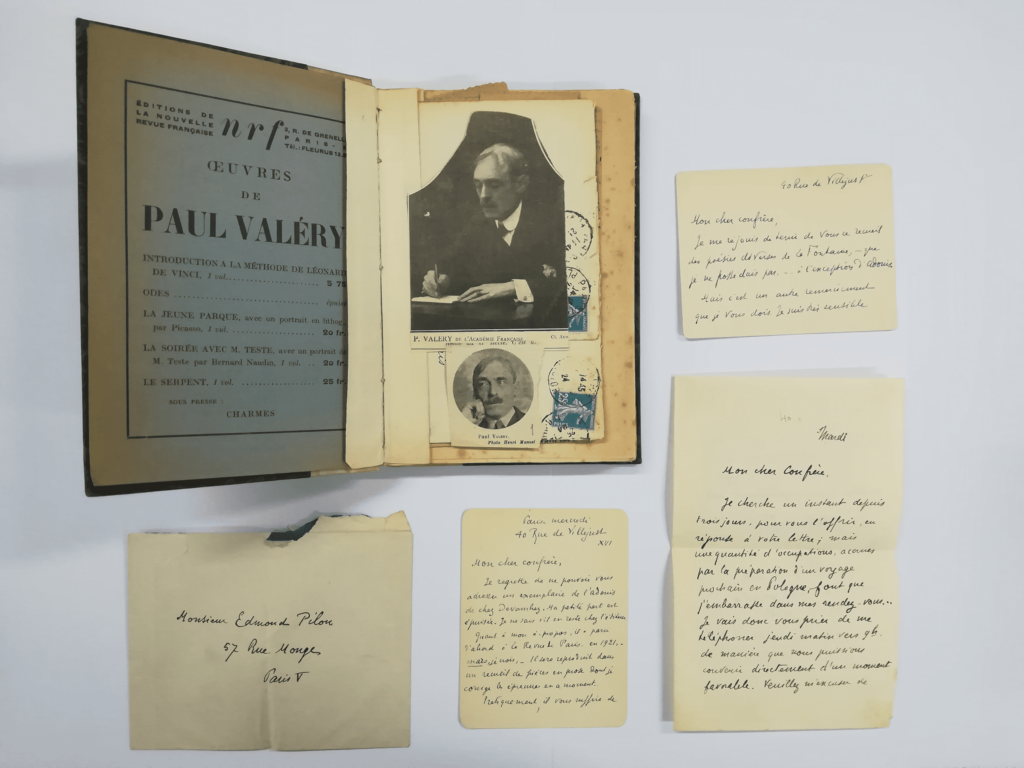 ÉDITIONS DE
LA NOUVELLE
REVUE FRANÇAISE
nrf
3, R. DE GRENELL
PARIS -
TÉL.: FLEURUS 12.
ŒUVRES
DE
PAUL VALÉRY
INTRODUCTION A LA MÉTHODE DE LÉONARD
DE VINCI, 1 vol.
5 75
ODES
LA JEUNE PARQUE, avec un portrait en lithog.
par Picasso, 1 vol.
20 fr.
LA SOIRÉE AVEC M. TESTE, avec un portrait de
M. Teste par Bernard Naudin, 1 vol.
20 fr
LE SERPENT, 1 vol.
25 fr
SOUS PRESSE :
CHARMES
P. VALÉRY DE L'ACADÉMIE FRANÇAISE
Paul Valéry.
Photo Henri Manuel
40 Rue de Villejust
Mon cher confrère,
Je me réjouis de tenir de vous ce recueil
des poésies diverses de la Fontaine, – que
je ne possédais pas – à l'exception d'Adonis
Mais c'est un autre remerciement
que je vous dois. Je suis très sensible
Mardi
Mon cher Confrère,
Je cherche un instant depuis
trois jours, pour vous l'offrir, en
réponse à votre lettre ; mais
une quantité d'occupations, accrues
par la préparation d'un voyage
prochain en Pologne, font que
j'embarrasse dans mes rendez-vous...
Je vais donc vous prier de me
téléphoner jeudi matin vers 9h.
de manière que nous puissions
convenir directement d'un moment
favorable. Veuillez m'excuser de
Paris mercredi
40 Rue de Villejust
XVI
Mon cher confrère,
Je regrette de ne pouvoir vous
adresser un exemplaire de l'adonis
de chez Devambez. Ma petite part est
épuisée. Je ne sais s'il en reste chez l'éditeur
Quant à mon à-propos, il a paru
d'abord à la Revue de Paris en 1921,
mars je crois, – Il sera reproduit dans
un recueil de pièces en prose dont je
corrige les épreuves en ce moment.
Pratiquement, il vous suffira de
Monsieur Edmond Pilon
57 Rue Monge
Paris V